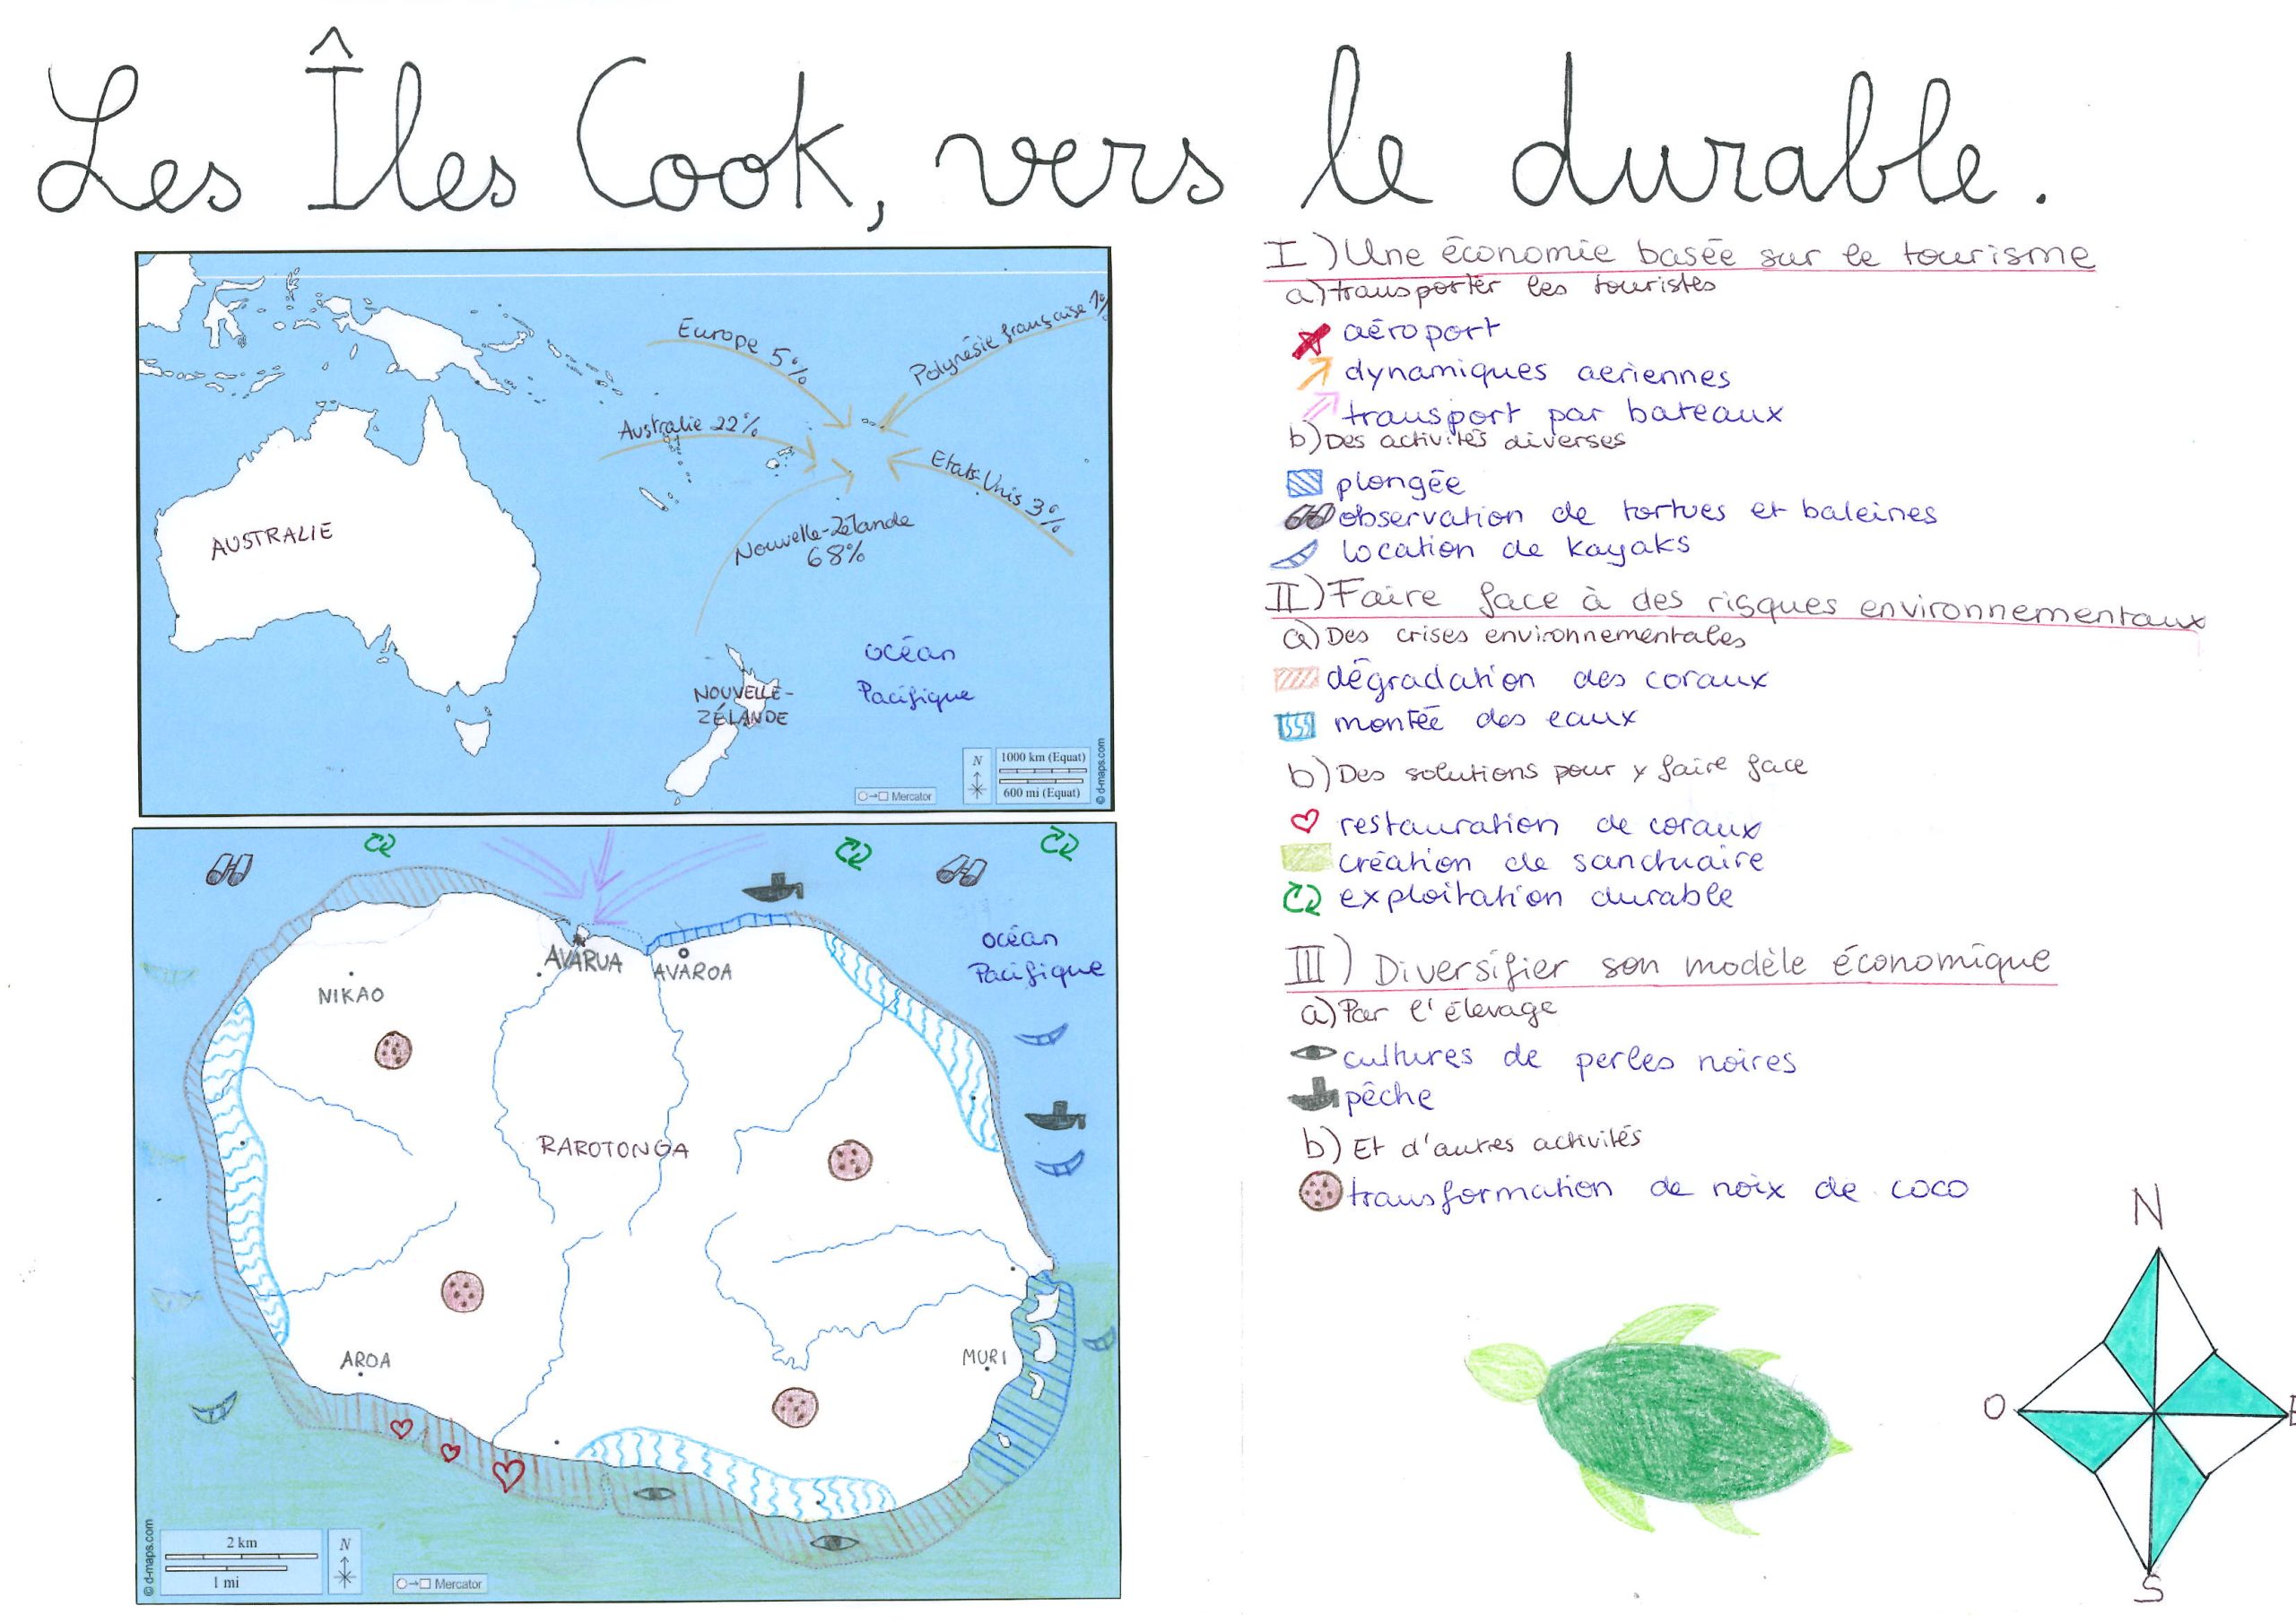 Les Îles Cook, vers le durable.
Europe 5%
Polynésie française 1%
Australie 22%
Etats-Unis 3%
Nouvelle-Zélande
68%
AUSTRALIE
NOUVELLE-
ZÉLANDE
océan
Pacifique
N
1000 km (Equat)
600 mi (Equat)
Mercator
© d-maps.com
océan
Pacifique
AVARUA
AVAROA
NIKAO
RAROTONGA
AROA
MURI
2 km
1 mi
N
Mercator
© d-maps.com
I) Une économie basée sur le tourisme
a) transporter les touristes
aéroport
dynamiques aeriennes
transport par bateaux
b) Des activités diverses
plongée
observation de tortues et baleines
location de kayaks
II) Faire face à des risques environnementaux
a) Des crises environnementales
dégradation des coraux
montée des eaux
b) Des solutions pour y faire face
restauration de coraux
création de sanctuaire
exploitation durable
III) Diversifier son modèle économique
a) Par l'élevage
cultures de perles noires
pêche
b) Et d'autres activités
transformation de noix de coco
N
O
E
S